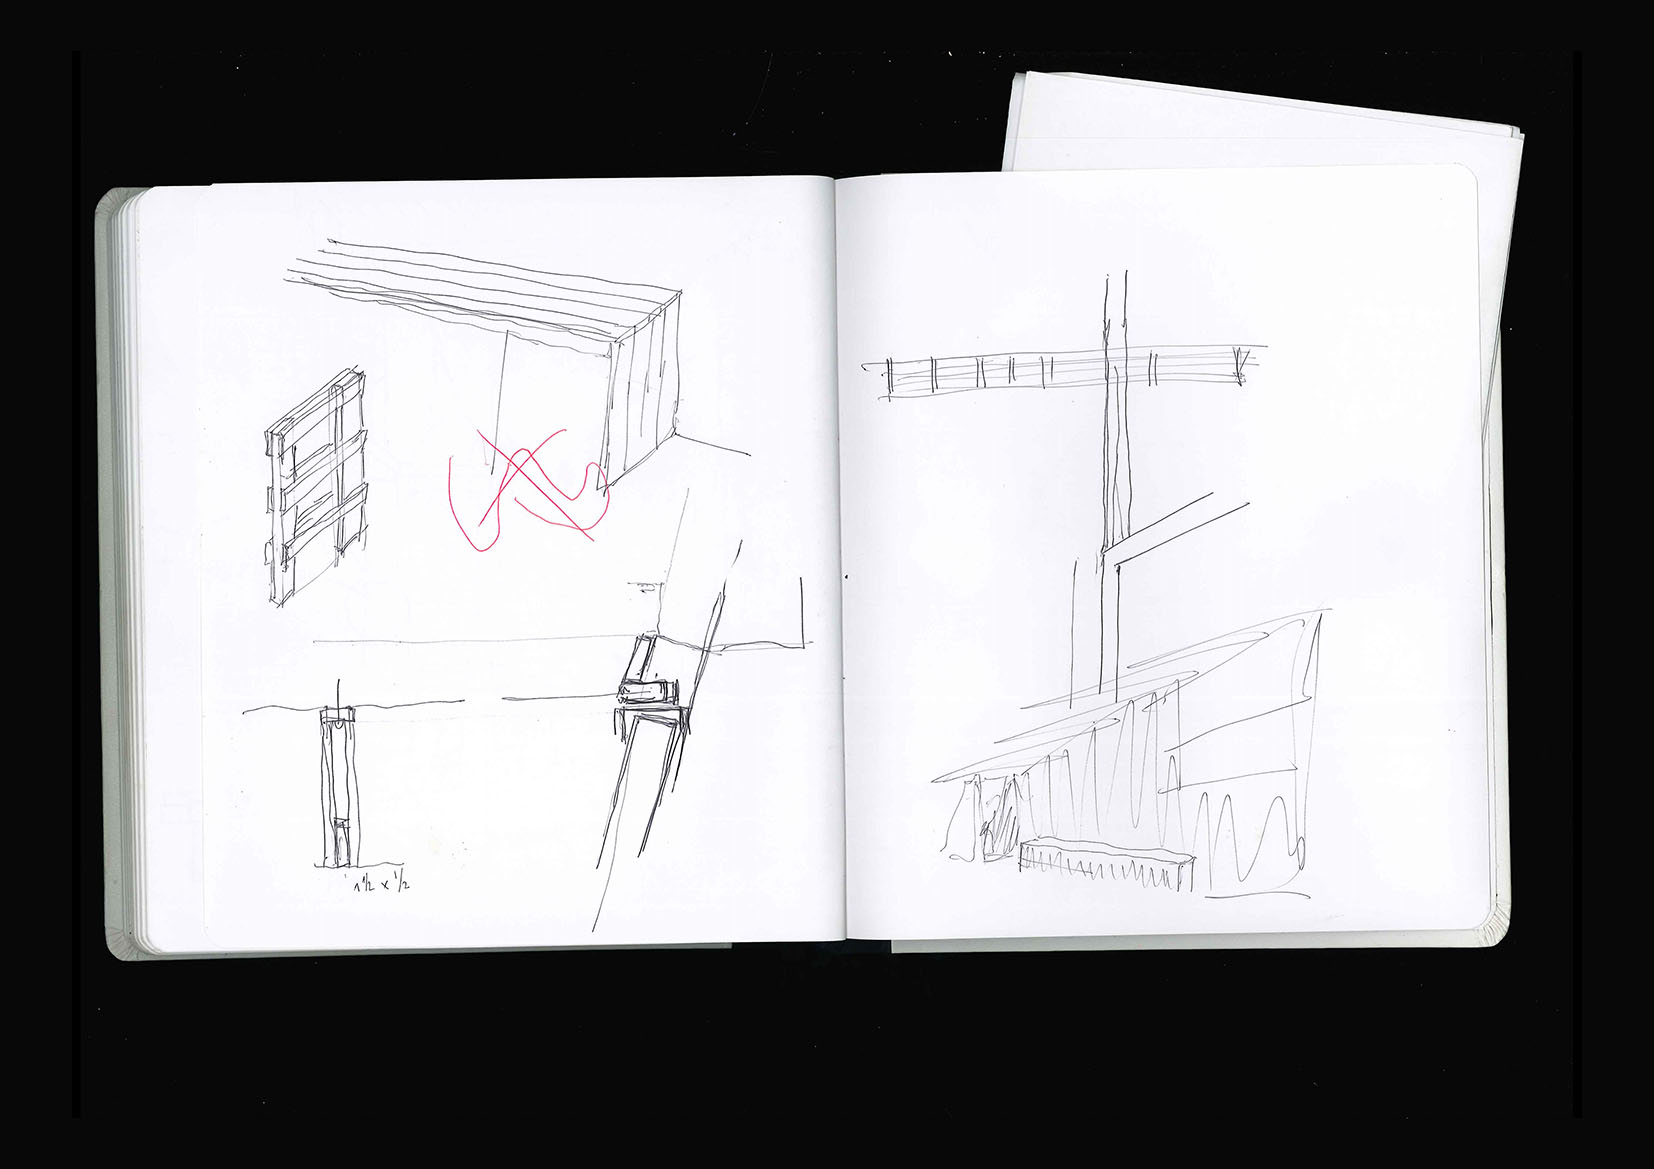 1 1/2 x 1/2